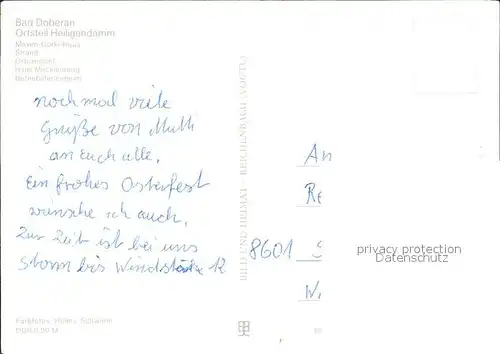 Bad Doberan
Ortsteil Heiligendamm
Maxim-Gorki-Haus
Strand
Ortsansicht
Haus Mecklenburg
nochmal viele
Grüße von Mutti
an Euch alle,
Ein frohes Osterfest
wünsche ich auch,
Zur Zeit ist bei uns
Sturm bis Windstärke 12
BILD UND HEIMAT · REICHENBACH (VOGTL)
An
Re
8601 S
W
privacy protection
Datenschutz